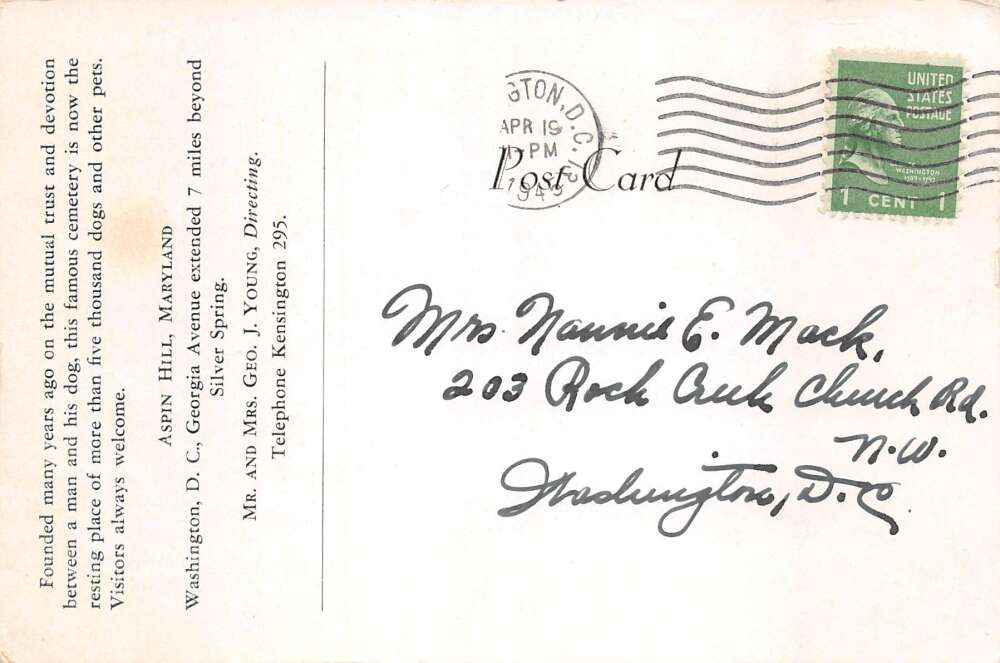 Founded many years ago on the mutual trust and devotion
between a man and his dog, this famous cemetery is now the
resting place of more than five thousand dogs and other pets.
Visitors always welcome.
ASPIN HILL, MARYLAND
Washington, D. C., Georgia Avenue extended 7 miles beyond
Silver Spring.
MR. AND MRS. GEO. J. YOUNG, Directing.
Telephone Kensington 295.
GTON, D.C. 12
APR 19
PM
1943
Post Card
UNITED
STATES
POSTAGE
WASHINGTON
1789-1797
1 CENT 1
Mrs. Nannie E. Mack,
203 Rock Creek Church Rd.
N.W.
Washington, D.C.